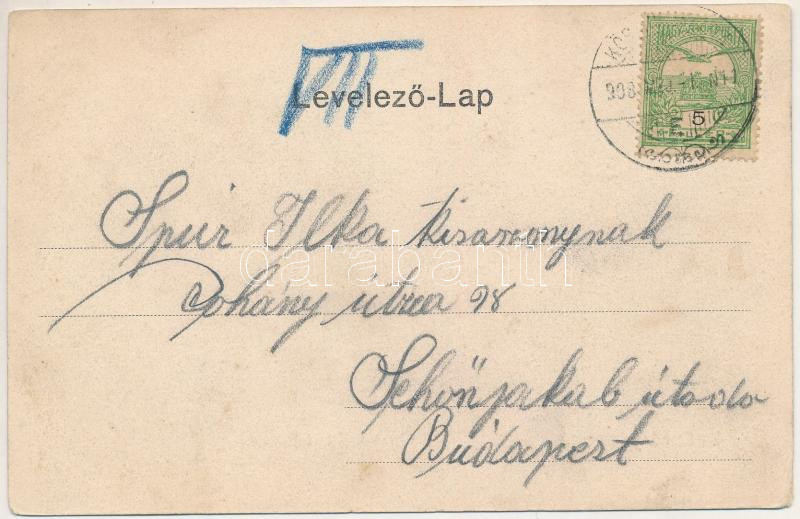 VII
Levelező-Lap
MAGYAR KIR. POSTA
5
908
Spur Ilka kisasszonynak
Dohány útza 98
Schönjakab útoda
Budapest
darabanth